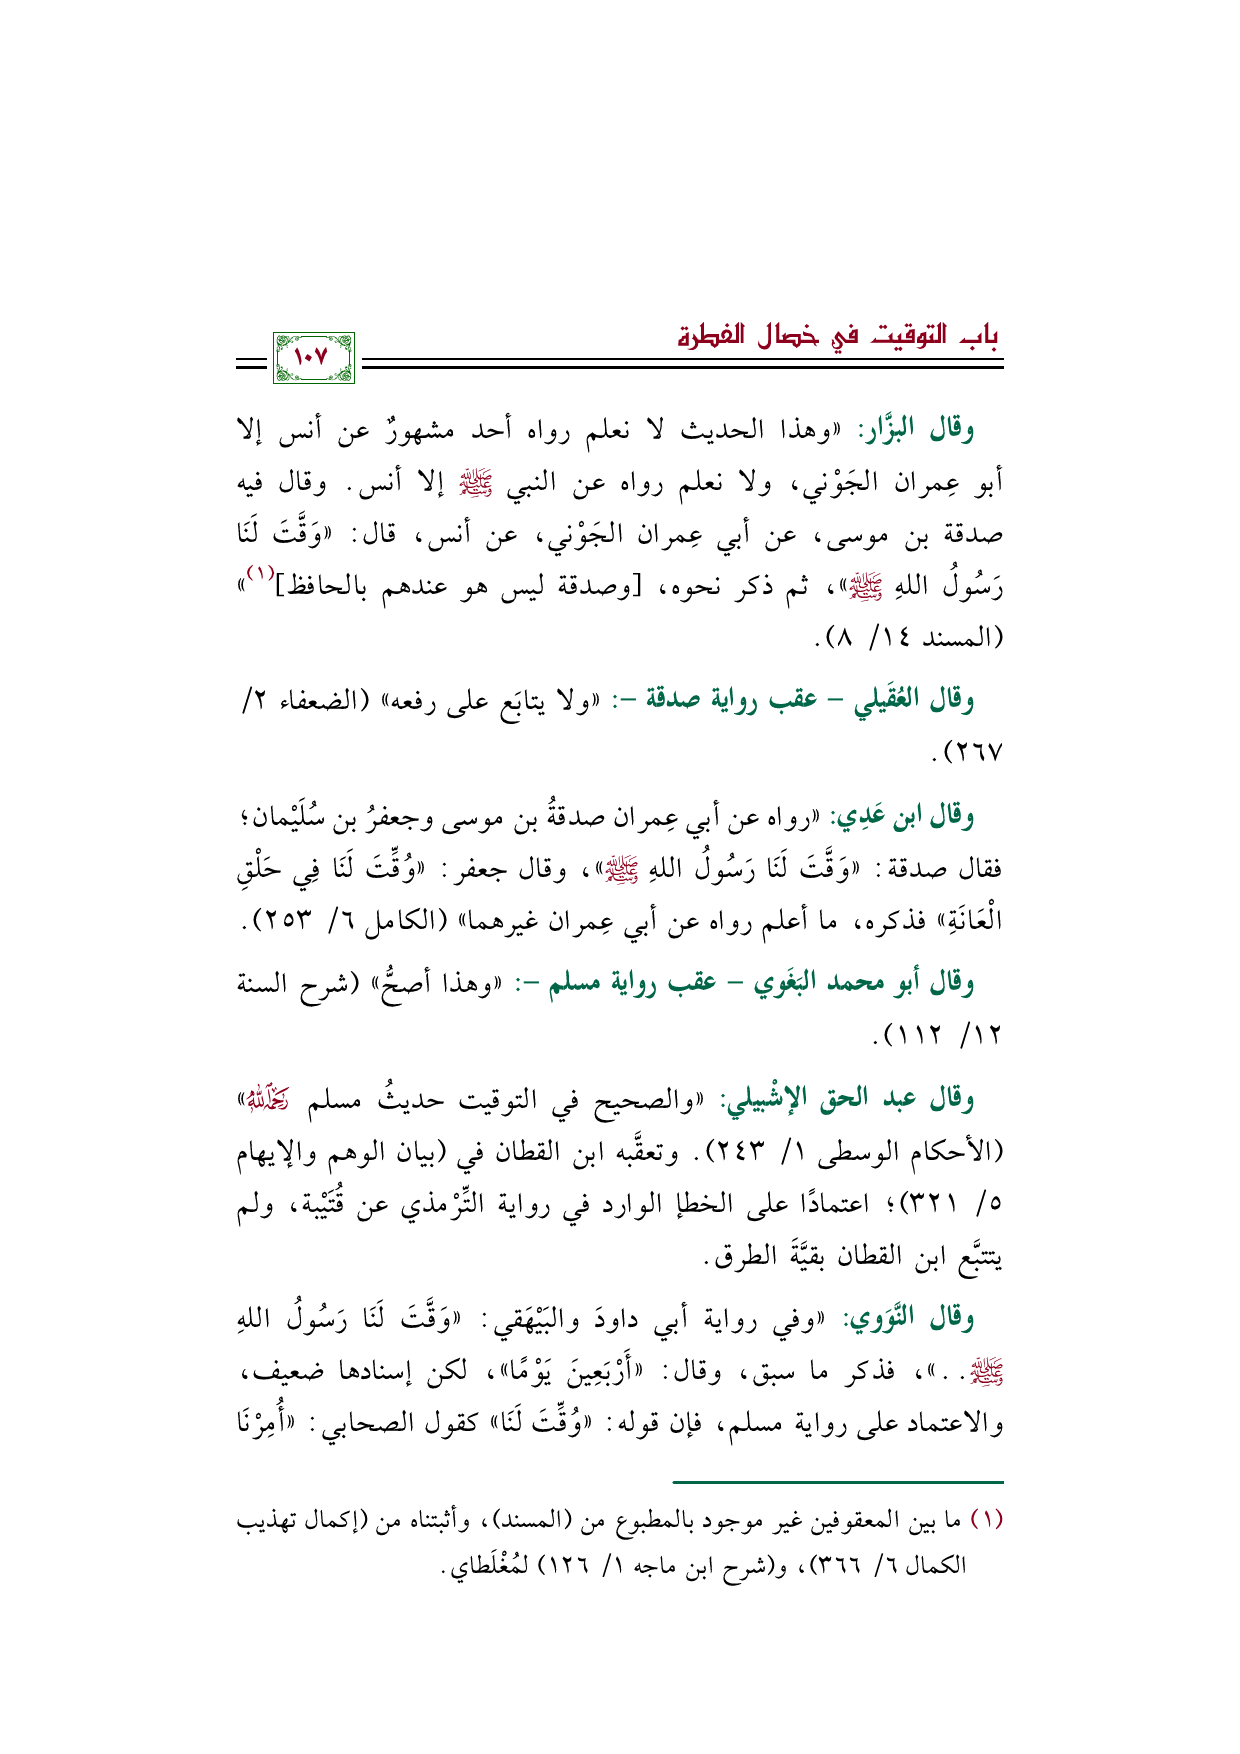 باب التوقيت في خصال الفطرة
١٠٧
وقال البزَّار: «وهذا الحديث لا نعلم رواه أحد مشهورٌ عن أنس إلا
أبو عِمران الجَوْني، ولا نعلم رواه عن النبي ﷺ إلا أنس. وقال فيه
صدقة بن موسى، عن أبي عِمران الجَوْني، عن أنس، قال: «وَقَّتَ لَنَا
رَسُولُ اللهِ ﷺ»، ثم ذكر نحوه، [وصدقة ليس هو عندهم بالحافظ](١)»
(المسند ١٤/ ٨).
وقال العُقَيلي – عقب رواية صدقة –: «ولا يتابَع على رفعه» (الضعفاء ٢/
٢٦٧).
وقال ابن عَدِي: «رواه عن أبي عِمران صدقةُ بن موسى وجعفرُ بن سُلَيْمان؛
فقال صدقة: «وَقَّتَ لَنَا رَسُولُ اللهِ ﷺ»، وقال جعفر: «وُقِّتَ لَنَا فِي حَلْقِ
الْعَانَةِ» فذكره، ما أعلم رواه عن أبي عِمران غيرهما» (الكامل ٦/ ٢٥٣).
وقال أبو محمد البَغَوي – عقب رواية مسلم –: «وهذا أصحُّ» (شرح السنة
١٢/ ١١٢).
وقال عبد الحق الإشْبيلي: «والصحيح في التوقيت حديثُ مسلم رَحِمَهُ اللهُ»
(الأحكام الوسطى ١/ ٢٤٣). وتعقَّبه ابن القطان في (بيان الوهم والإيهام
٥/ ٣٢١)؛ اعتمادًا على الخطإ الوارد في رواية التِّرْمذي عن قُتَيْبة، ولم
يتتبَّع ابن القطان بقيَّةَ الطرق.
وقال النَّوَوي: «وفي رواية أبي داودَ والبَيْهَقي: «وَقَّتَ لَنَا رَسُولُ اللهِ
ﷺ. .»، فذكر ما سبق، وقال: «أَرْبَعِينَ يَوْمًا»، لكن إسنادها ضعيف،
والاعتماد على رواية مسلم، فإن قوله: «وُقِّتَ لَنَا» كقول الصحابي: «أُمِرْنَا
(١) ما بين المعقوفين غير موجود بالمطبوع من (المسند)، وأثبتناه من (إكمال تهذيب
الكمال ٦/ ٣٦٦)، و(شرح ابن ماجه ١/ ١٢٦) لمُغْلَطاي.